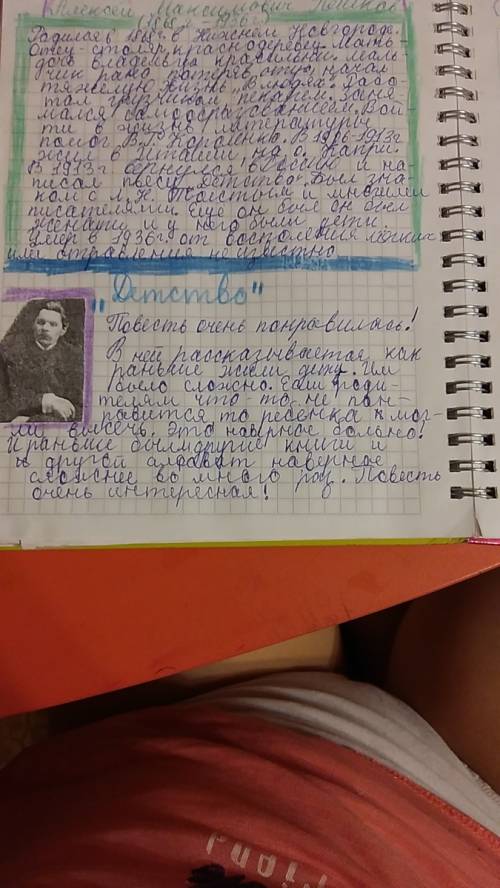 Алексей Максимович Пешков
(1868 г – 1936 г)
Родился в 1868г. в Нижнем Новгороде.
Отец – столяр, краснодеревец. Мать –
дочь владельца красильни. Маль-
чик рано потерял отца, начал
тяжелую жизнь „В людях“. Рабо-
тал грузчиком, пекарем. Зани-
мался самообразованием. Вой-
ти в жизнь литературы
помог В.Г. Короленко. В 1906-1913г
жил в Италии, на о. Капри.
В 1913г вернулся в Россию и на-
писал пьесу „Детство“. Был зна-
ком с Л.Н. Толстым и многими
писателями. Ещё он был он был
женат и у него были дети.
Умер в 1936г. от воспаления лёгких
или отравления неизвестно
„Детство“
Повесть очень понравилась!
В ней рассказывается, как
раньше жили дети. Им
было сложно. Если роди-
телям что-то не пон-
равится то ребёнка могли
ли высечь. Это наверное больно!
И раньше были другие книги и
и другой алфавит наверное
сложнее во много раз. Повесть
очень интересная!